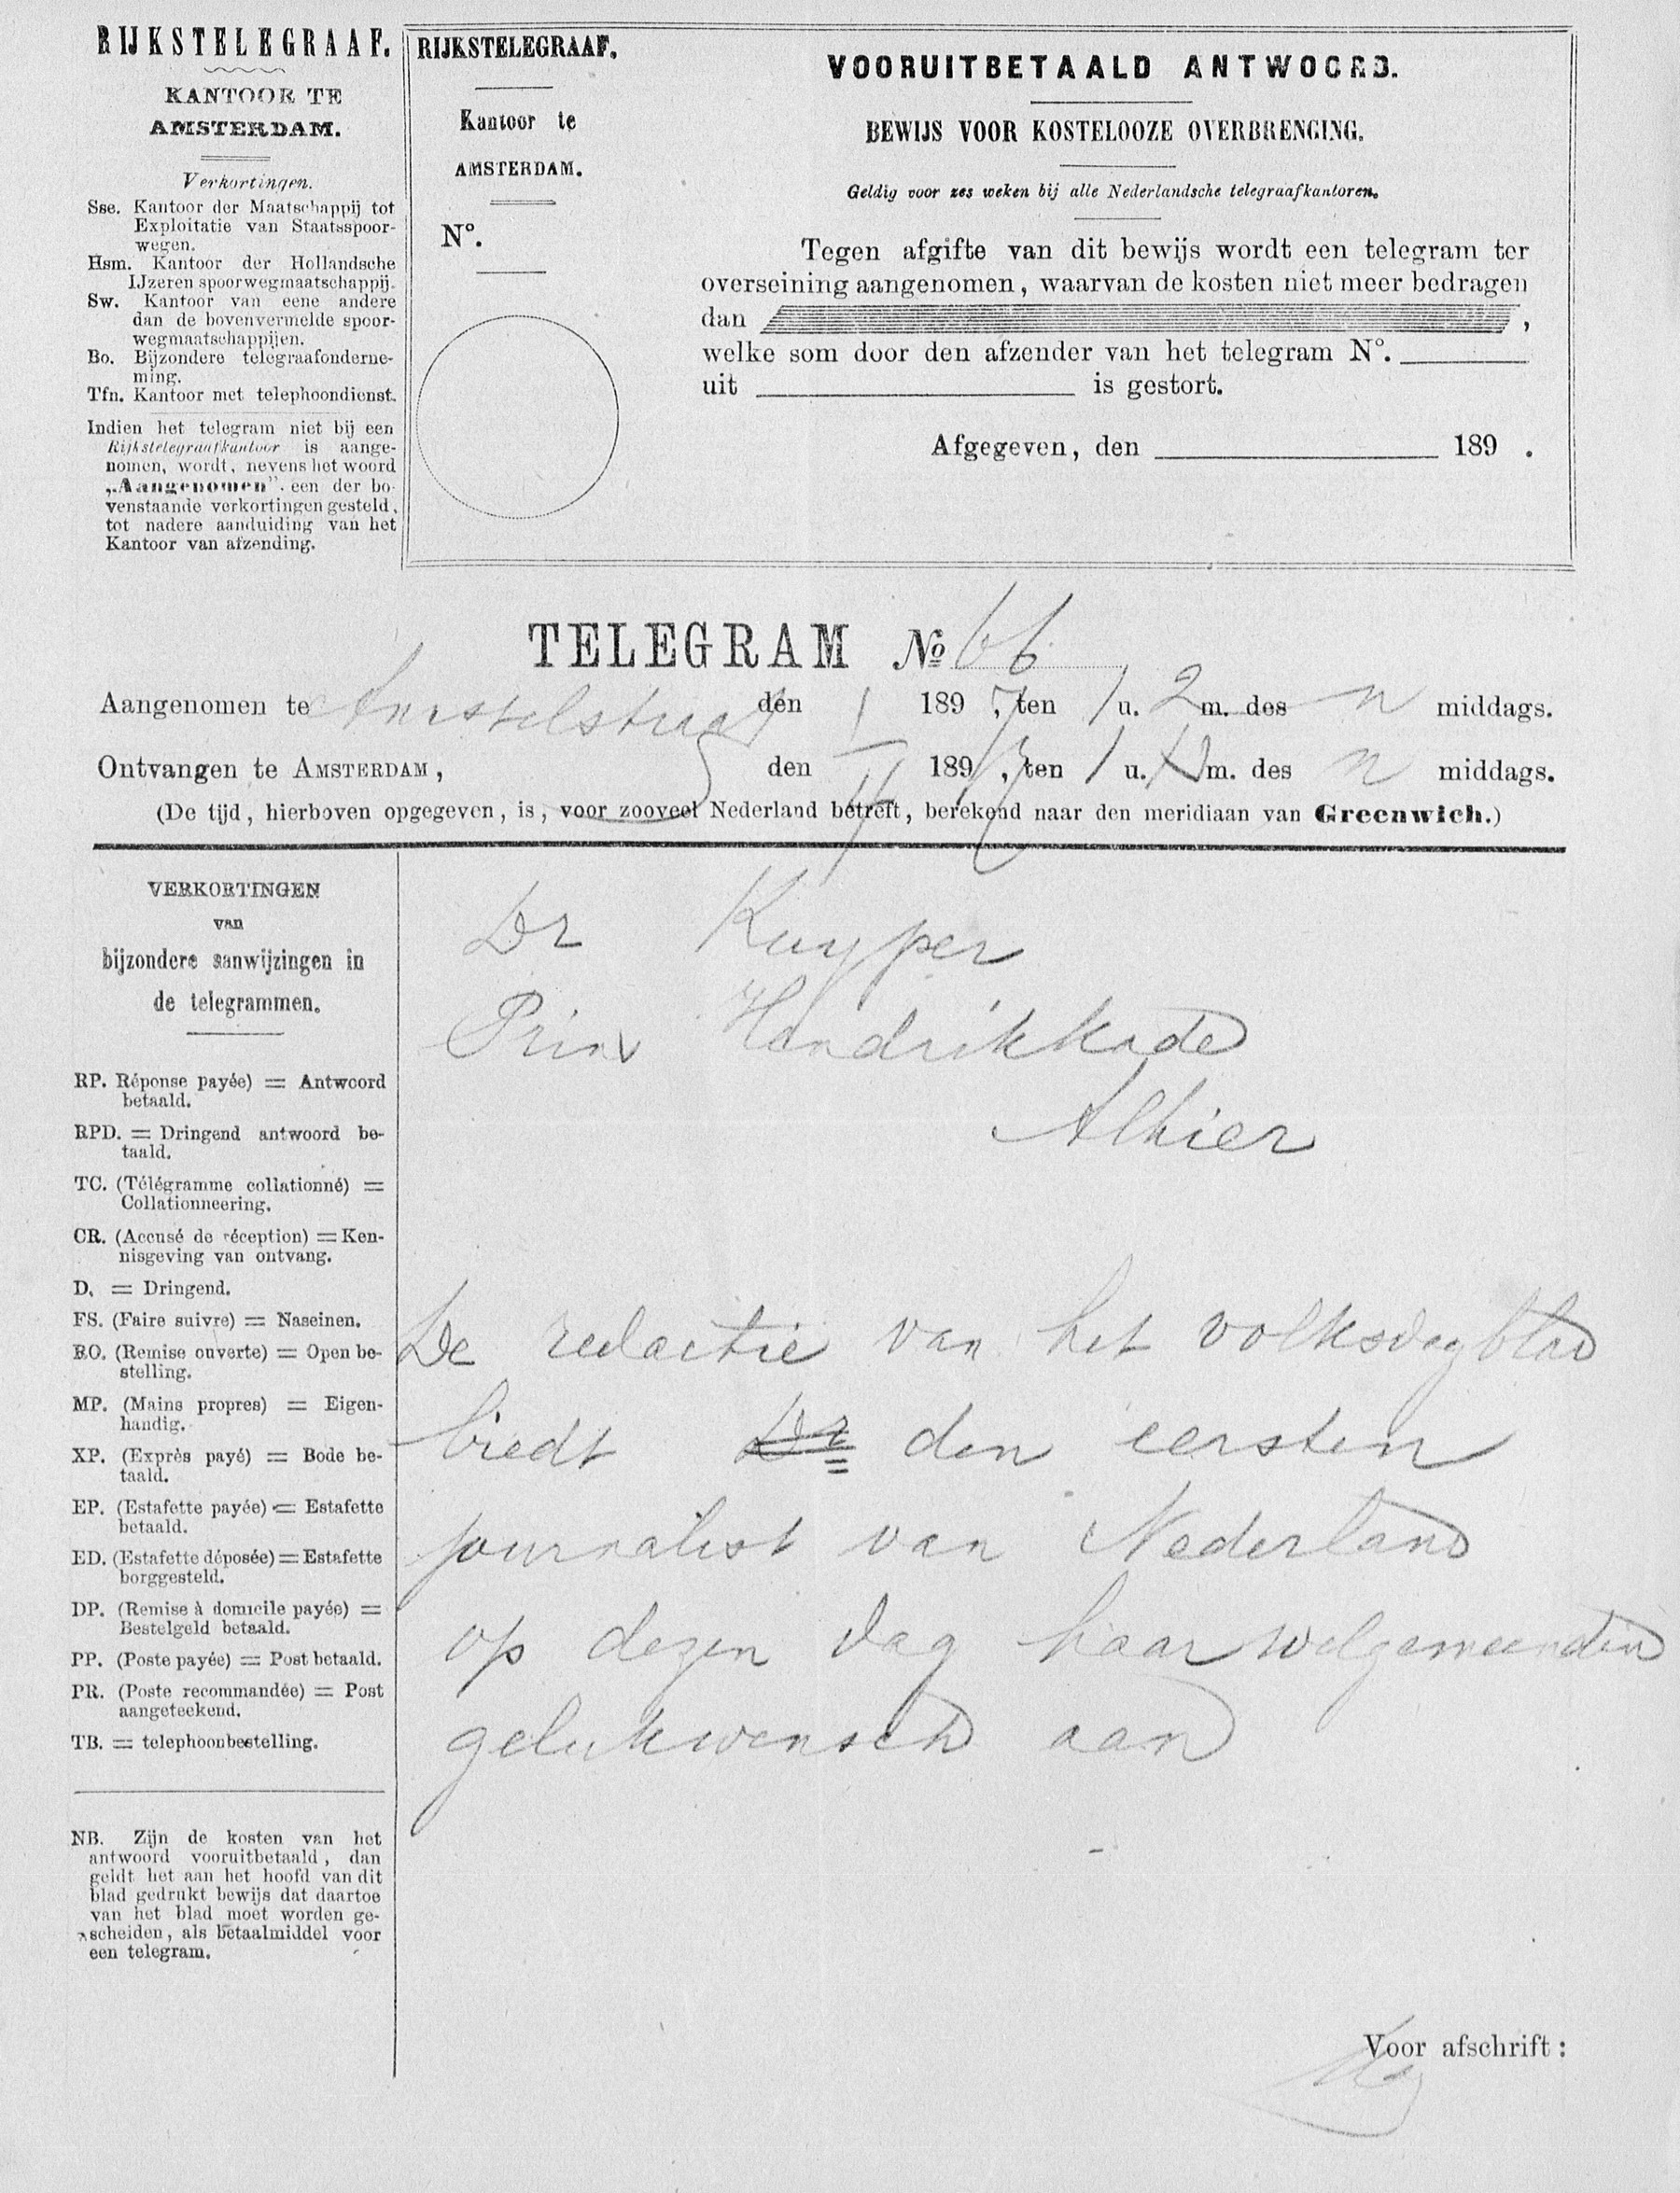 RIJKSTELEGRAAF.
KANTOOR TE
AMSTERDAM.
Verkortingen.
Sse. Kantoor der Maatschappij tot
Exploitatie van Staatsspoor-
wegen.
Hsm. Kantoor der Hollandsche
IJzeren spoorwegmaatschappij.
Sw. Kantoor van eene andere
dan de bovenvermelde spoor-
wegmaatschappijen.
Bo. Bijzondere telegraafonderne-
ming.
Tfn. Kantoor met telephoondienst.
Indien het telegram niet bij een
Rijkstelegraafkantoor is aange-
nomen, wordt, nevens het woord
„Aangenomen" een der bo-
venstaande verkortingen gesteld,
tot nadere aanduiding van het
Kantoor van afzending.
RIJKSTELEGRAAF.
Kantoor te
AMSTERDAM.
N°.
VOORUITBETAALD ANTWOORD.
BEWIJS VOOR KOSTELOOZE OVERBRENGING.
Geldig voor zes weken bij alle Nederlandsche telegraafkantoren.
Tegen afgifte van dit bewijs wordt een telegram ter
overseining aangenomen, waarvan de kosten niet meer bedragen
dan ,
welke som door den afzender van het telegram N°.
uit is gestort.
Afgegeven, den 189 .
TELEGRAM No 66
Aangenomen te Amstelstraat den 1 189 7, ten 1 u. 2 m. des n middags.
Ontvangen te AMSTERDAM, den 189 , ten 1 u. m. des n middags.
(De tijd, hierboven opgegeven, is, voor zooveel Nederland betreft, berekend naar den meridiaan van Greenwich.)
VERKORTINGEN
van
bijzondere aanwijzingen in
de telegrammen.
RP. Réponse payée) = Antwoord
betaald.
RPD. = Dringend antwoord be-
taald.
TC. (Télégramme collationné) =
Collationneering.
CR. (Accusé de réception) = Ken-
nisgeving van ontvang.
D. = Dringend.
FS. (Faire suivre) = Naseinen.
RO. (Remise ouverte) = Open be-
stelling.
MP. (Mains propres) = Eigen-
handig.
XP. (Exprès payé) = Bode be-
taald.
EP. (Estafette payée) = Estafette
betaald.
ED. (Estafette déposée) = Estafette
borggesteld.
DP. (Remise à domicile payée) =
Bestelgeld betaald.
PP. (Poste payée) = Post betaald.
PR. (Poste recommandée) = Post
aangeteekend.
TB. = telephoonbestelling.
NB. Zijn de kosten van het
antwoord vooruitbetaald, dan
geldt het aan het hoofd van dit
blad gedrukt bewijs dat daartoe
van het blad moet worden ge-
scheiden, als betaalmiddel voor
een telegram.
Dr Kuyper
Prins Hendrikkade
Alhier
De redactie van het volksdagblad
biedt Dr den eersten
journalist van Nederland
op dezen dag haar welgemeenden
gelukwensch aan
Voor afschrift: